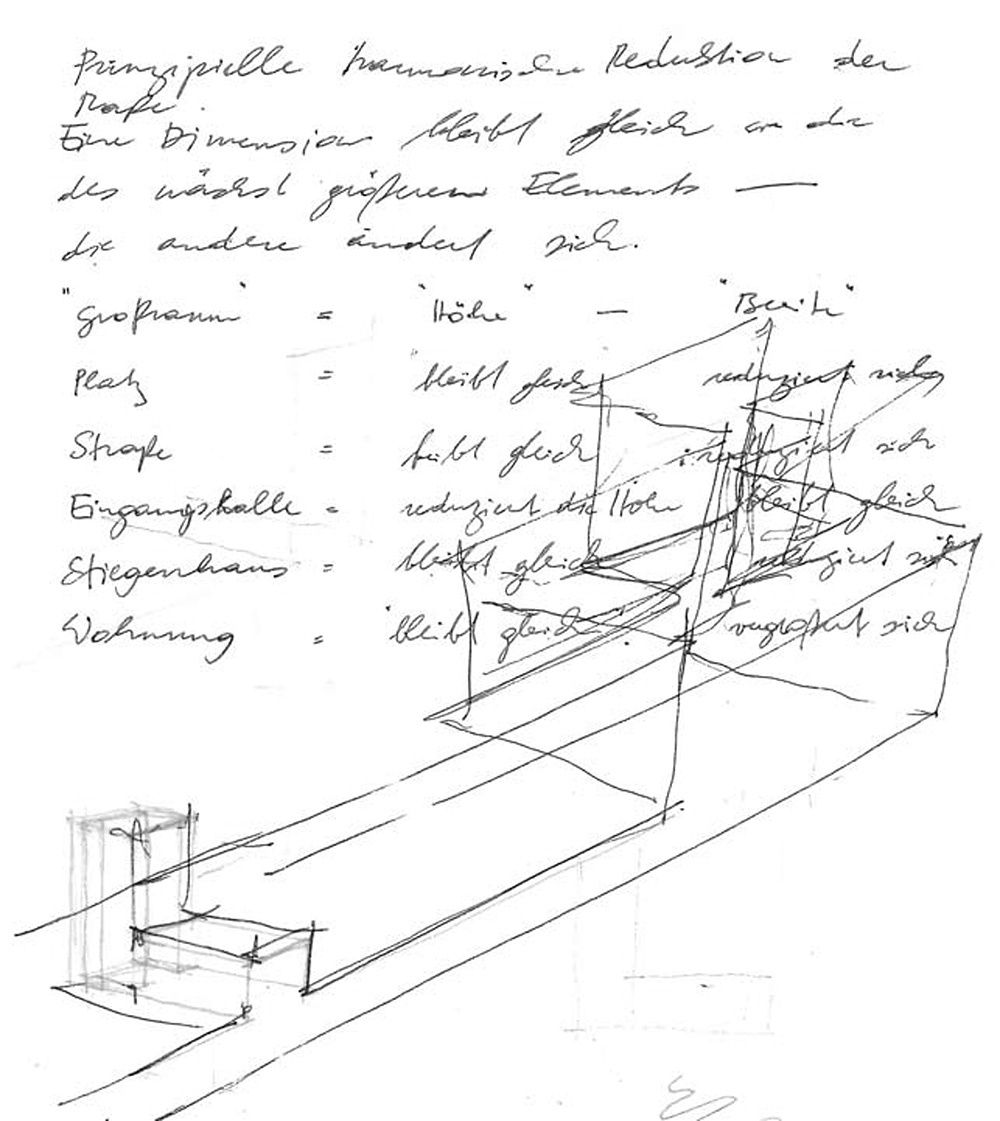 Prinzipielle harmonische Reduktion der
Maße.
Eine Dimension bleibt gleich an die
des nächst größeren Elements —
die andere ändert sich.
"Großraum" = "Höhe" — "Breite"
Platz = bleibt gleich reduziert sich
Straße = bleibt gleich reduziert sich
Eingangshalle = reduziert die Höhe bleibt gleich
Stiegenhaus = bleibt gleich reduziert sich
Wohnung = bleibt gleich vergrößert sich